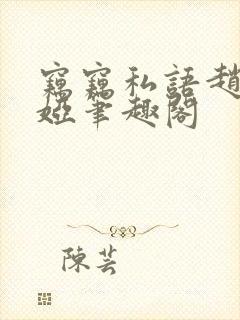 竊竊私語趙
婭筆趣閣
陳芸